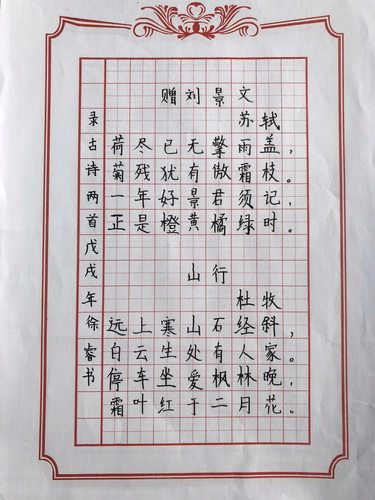 赠刘景文
苏轼
荷尽已无擎雨盖，
菊残犹有傲霜枝。
一年好景君须记，
正是橙黄橘绿时。
山行
杜牧
远上寒山石经斜，
白云生处有人家。
停车坐爱枫林晚，
霜叶红于二月花。
录古诗两首戊戌年徐睿书